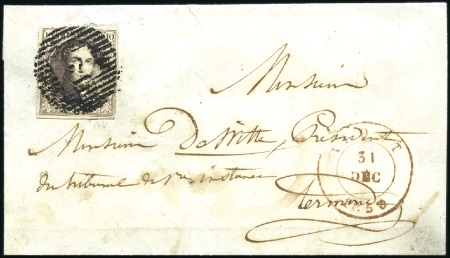 10
Monsieur
Monsieur DeWitte, Président
du tribunal de 1re instance
Termonde
31
DEC